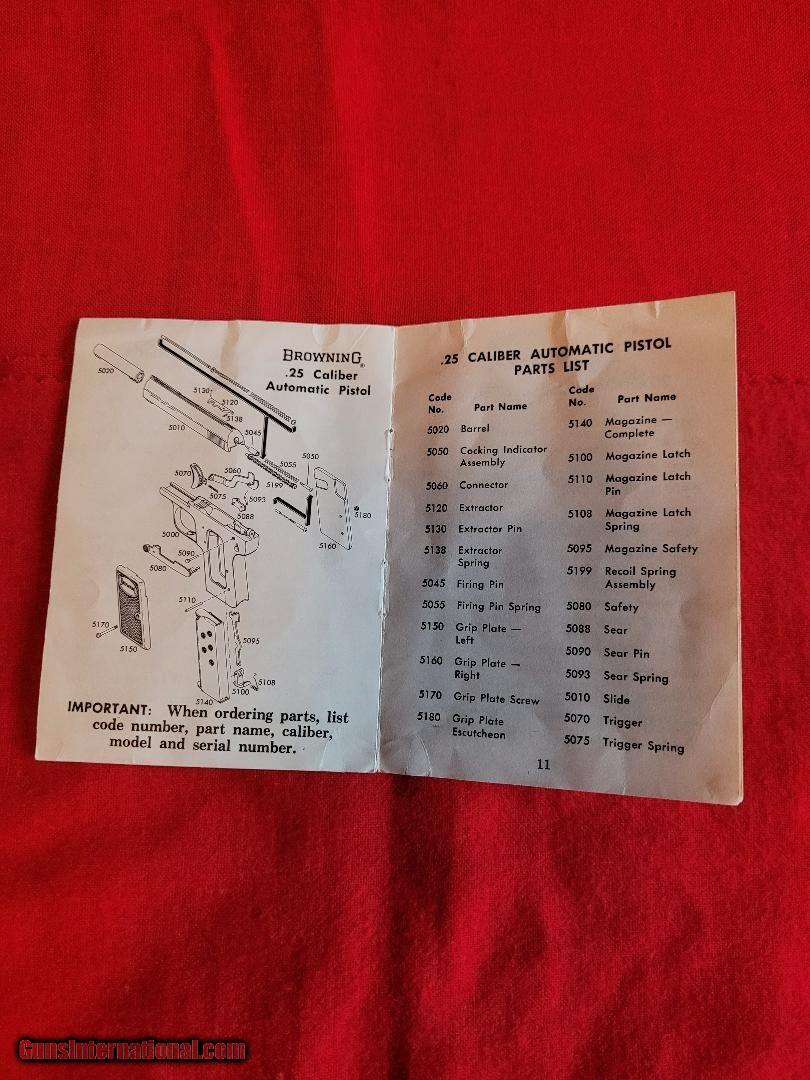 BROWNING®
.25 Caliber
Automatic Pistol
5020
5130
5120
5138
5010
5045
5055
5050
5070
5060
5199
5075
5093
5088
5180
5160
5000
5090
5080
5110
5170
5150
5095
5108
5100
5140
IMPORTANT: When ordering parts, list
code number, part name, caliber,
model and serial number.
.25 CALIBER AUTOMATIC PISTOL
PARTS LIST
Code
No. Part Name
5020 Barrel
5050 Cocking Indicator
Assembly
5060 Connector
5120 Extractor
5130 Extractor Pin
5138 Extractor
Spring
5045 Firing Pin
5055 Firing Pin Spring
5150 Grip Plate —
Left
5160 Grip Plate —
Right
5170 Grip Plate Screw
5180 Grip Plate
Escutcheon
Code
No. Part Name
5140 Magazine —
Complete
5100 Magazine Latch
5110 Magazine Latch
Pin
5108 Magazine Latch
Spring
5095 Magazine Safety
5199 Recoil Spring
Assembly
5080 Safety
5088 Sear
5090 Sear Pin
5093 Sear Spring
5010 Slide
5070 Trigger
5075 Trigger Spring
11
GunsInternational.com